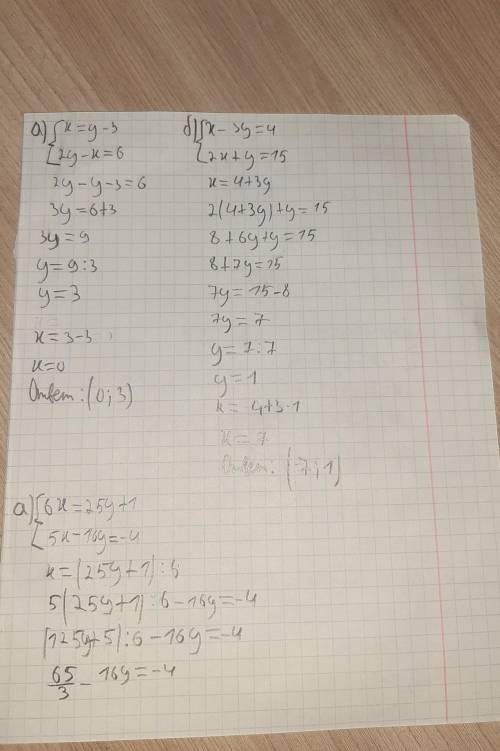 а) { x = y - 3
2y - x = 6
2y - y - 3 = 6
3y = 6 + 3
3y = 9
y = 9 : 3
y = 3
x = 3 - 3
x = 0
Ответ : (0 ; 3)
б) { x - 3y = 4
2x + y = 15
x = 4 + 3y
2(4 + 3y) + y = 15
8 + 6y + y = 15
8 + 7y = 15
7y = 15 - 8
7y = 7
y = 7 : 7
y = 1
x = 4 + 3 · 1
x = 7
Ответ : (7 ; 1)
а) { 6x = 25y + 1
5x - 16y = -4
x = (25y + 1) : 6
5(25y + 1) : 6 - 16y = -4
(125y + 5) : 6 - 16y = -4
65/3 - 16y = -4